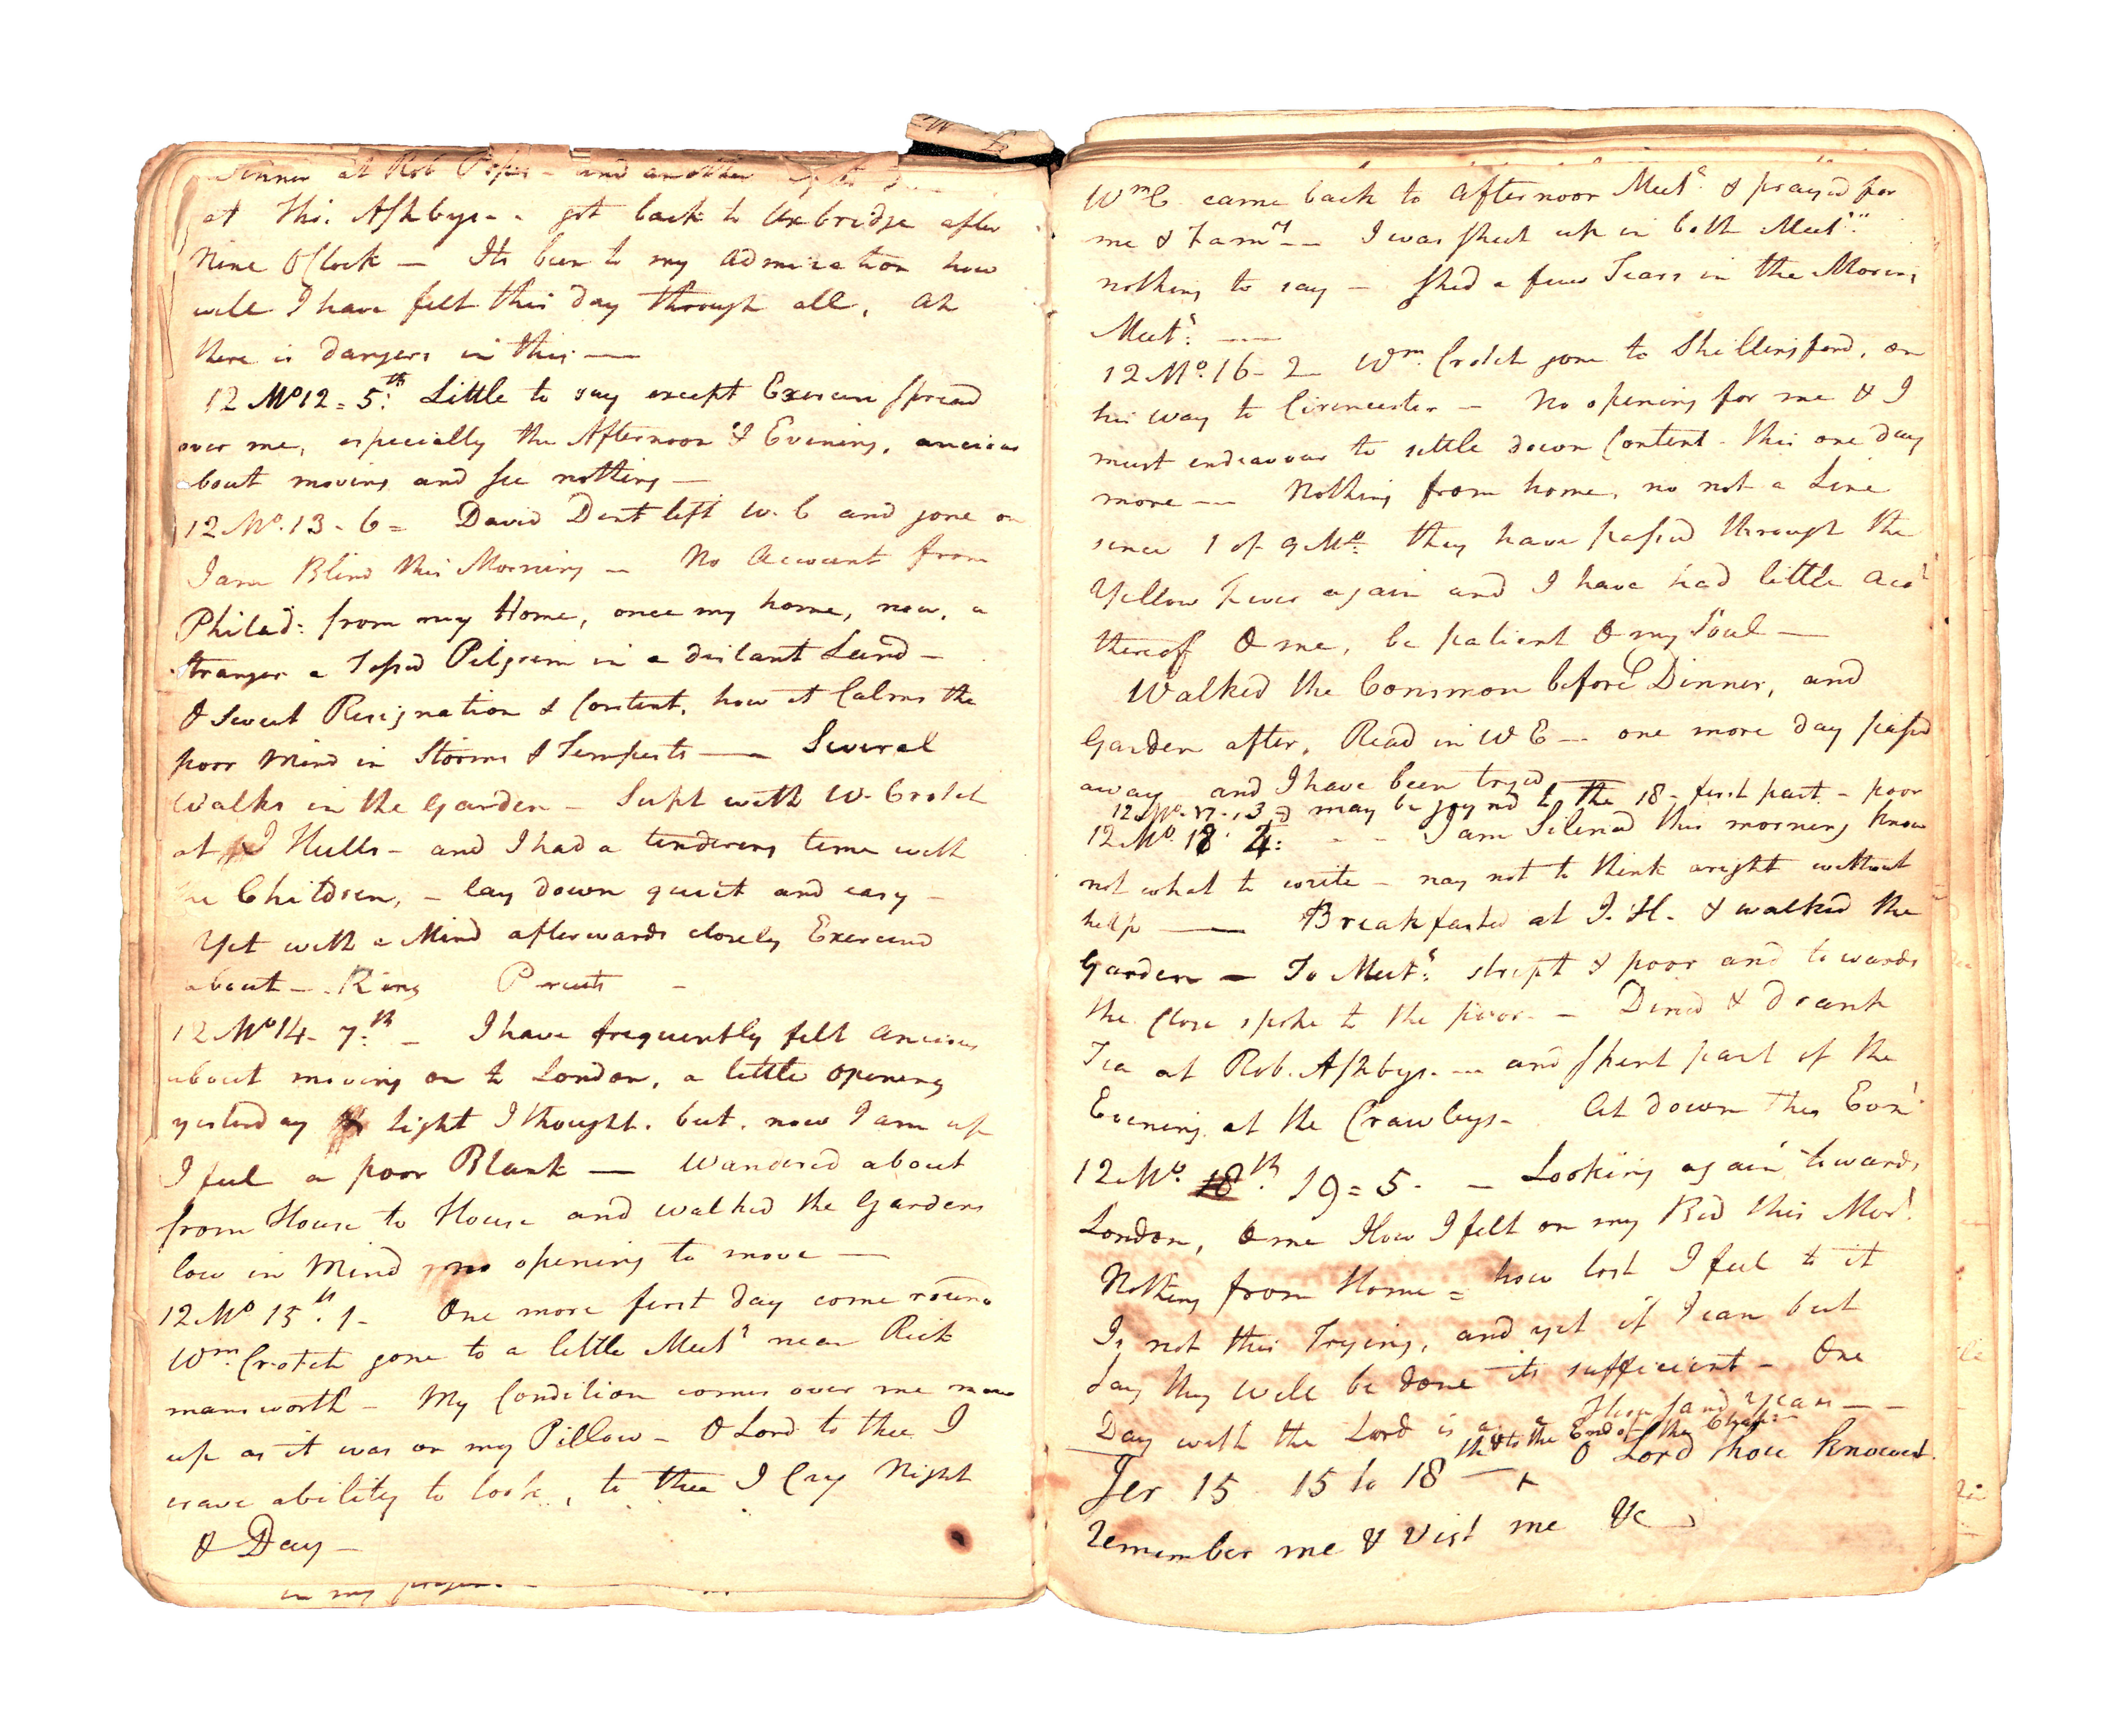 Dinner at Rob Popes - and another after
at Tho. Ashbys - - got back to Uxbridge after
Nine OClock — Its been to my admiration how
well I have felt this day through all, Ah
there is dangers in this —
12 Mo 12 = 5th: Little to say except Exercise spread
over me, especially the Afternoon & Evening, ancious
about moving and see nothing —
12 Mo. 13 - 6 = David Dent left W. C and gone on
I am Blind this Morning — No Account from
Philad: from my Home, once my home, now, a
stranger a Tossed Pilgrim in a distant Land —
O sweet Resignation & Content, how it Calms the
poor Mind in Storms & Tempests —— Several
Walks in the Garden — Supt with W. Crotch
at J Hulls - and I had a tendering time with
the Children, - lay down quiet and easy -
Yet with a Mind afterwards closely Exercised
about - . King -
12 Mo 14 - 7:th - I have frequently felt ancious
about moving on to London, a little opening
yesterday light I thought. but. now I am up
I feel a poor Blank — Wandered about
from House to House and walked the Gardens
low in Mind no opening to move —
12 Mo 15th . 1 - One more first day come round
Wm. Crotch gone to a little Meetg near Rick
mansworth - My Condition comes over me now
up as it was on my Pillow - O Lord to thee I
crave ability to look, to thee I Cry Night
& Day —
in my
Wm C. came back to afternoon Meetg & prayed for
me & Famy — I was shut up in both Meetgs
nothing to say — shed a few Tears in the Morng
Meetg: ——
12 Mo. 16 - 2 - Wm. Crotch gone to Shillingford, on
his way to Cirencester - No opening for me & I
must endeavour to settle down Content - this one day
more —— Nothing from home, no not a Line
since 1 of 9 Mo: they have passed through the
Yellow Fever again and I have had little acct
thereof O me, be patient O my Soul —
Walked the Common before Dinner, and
Garden after, Read in W E — one more day passd
away and I have been tryed
12 Mo. 17 . 3 may be joynd to the 18 - first part - poor
12 Mo. 18 4: - - I am Silencd this morning know
not what to write - nay not to think aright without
help —— Breakfasted at J. H. & walked the
Garden — To Meetg: stript & poor and towards
the Close spoke to the poor - - Dined & drank
Tea at Rob. Ashbys. — and spent part of the
Evening at the Crawleys - Let down this Eveng
12 Mo. 18th. 19 = 5 - - Looking again towards
London, O me How I felt on my Bed this Morg
Nothing from Home = how lost I feel to it
Is not this Trying, and yet if I can but
say thy Will be done its sufficient - One
Day with the Lord is as a Thousand years - -
th & to the End of the Chapr
Jer 15 15 to 18 — + O Lord thou knowest
remember me & visit me &c